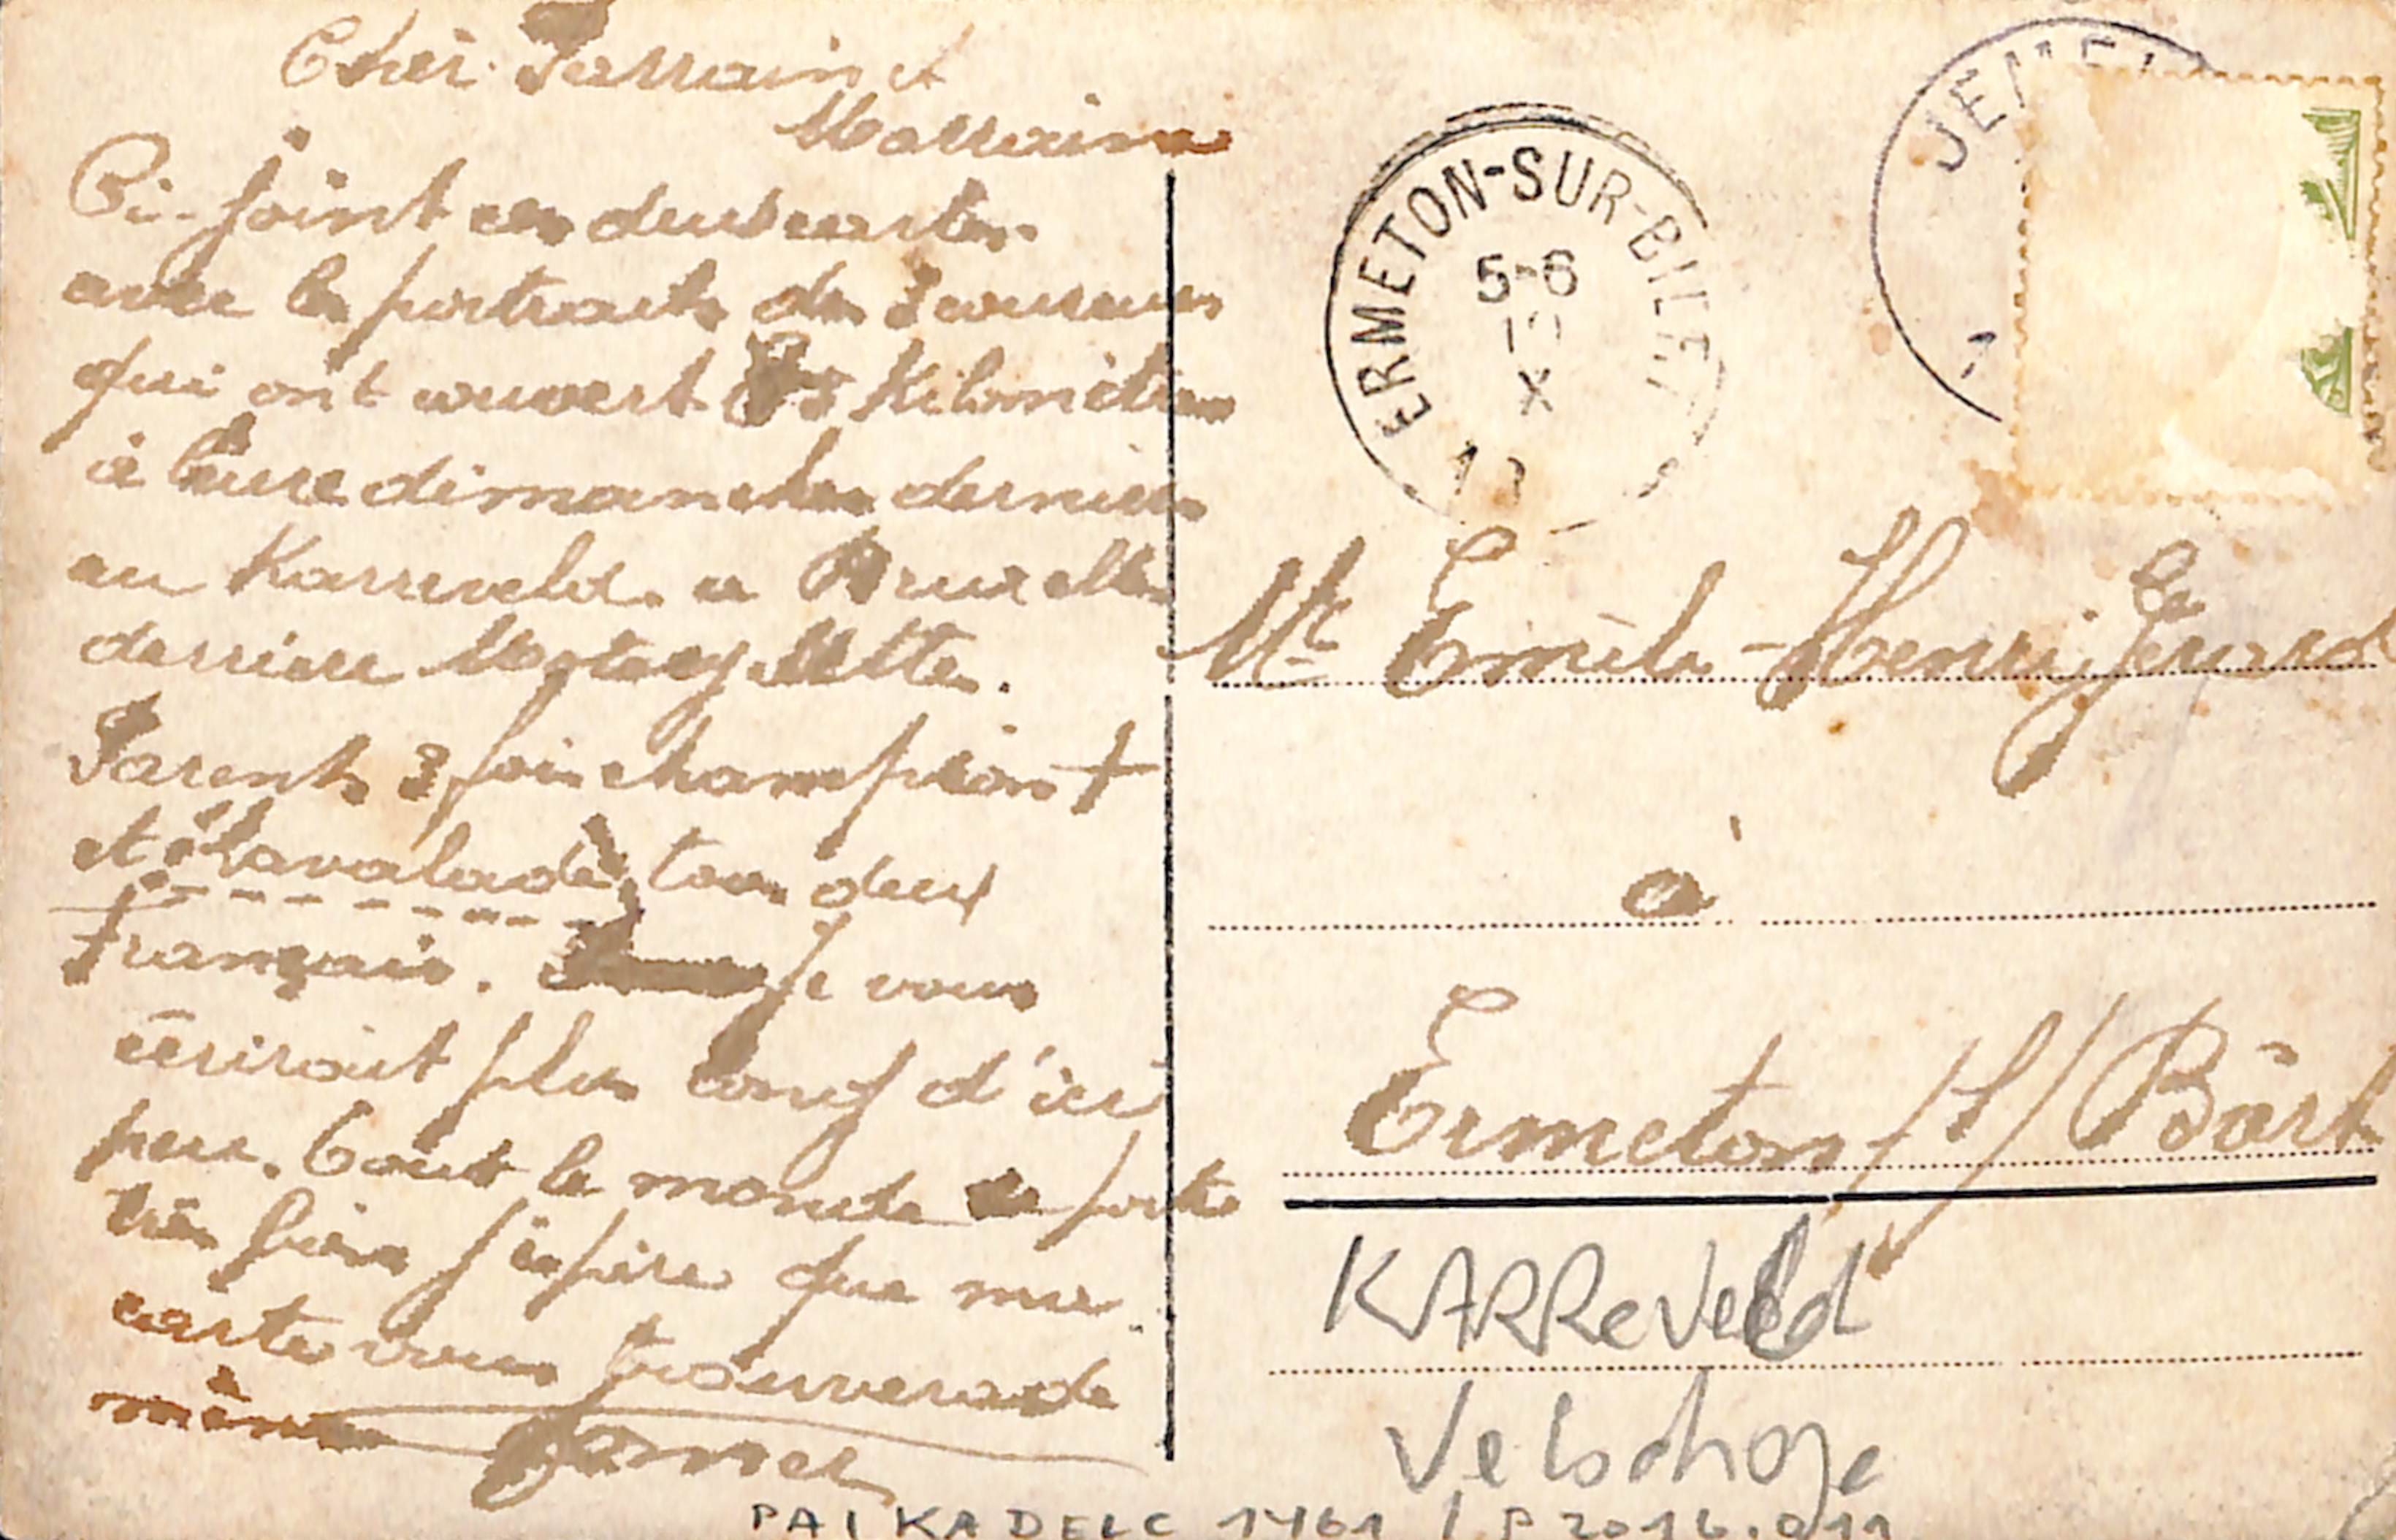 Cher Parrain et
Marraine
Ci-joint ces deux cartes
avec les portraits des 2 coureurs
qui ont couvert Kilomètres
à l'heure dimanche dernier
au Karreveld a Bruxelles
derrière Motocyclette.
Parent 3 fois champion +
et Lavalade, tous deux
Français. Je vous
écrirait plus long d'ici
peu. Tout le monde se porte
très bien j'espère que ma
carte vous trouvera de
même
JEME
ERMETON-SUR-BIERT
5-6
X
Mr Emile-Henri Gérard
à
Ermeton /S/ Biert
KARReveld
PAI KADELC 1461 / P 2016.011